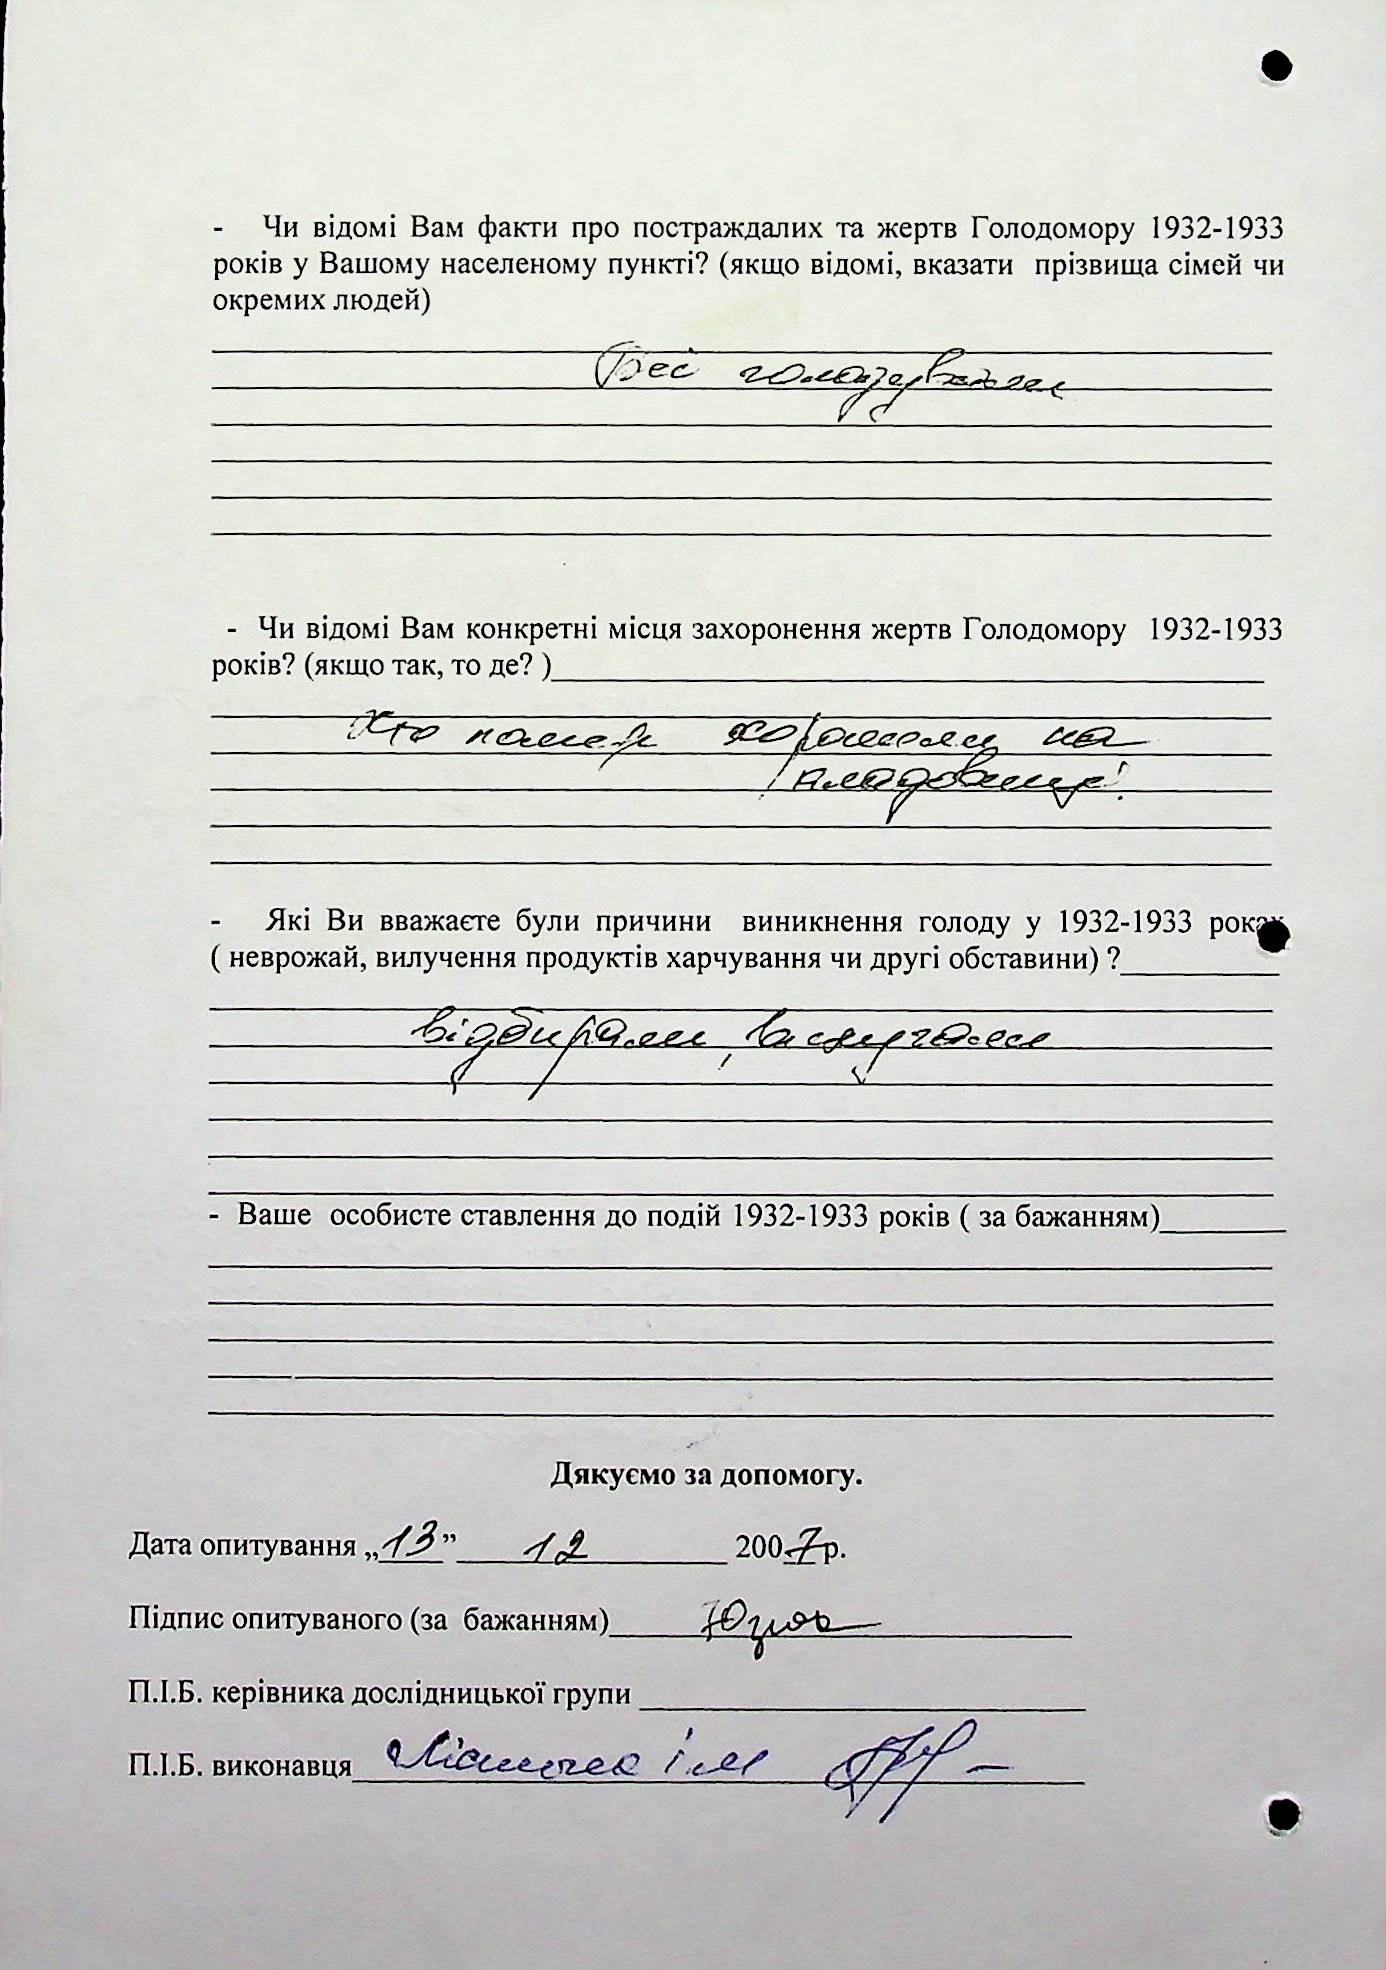 - Чи відомі Вам факти про постраждалих та жертв Голодомору 1932-1933
років у Вашому населеному пункті? (якщо відомі, вказати прізвища сімей чи
окремих людей)
Всі голодували
- Чи відомі Вам конкретні місця захоронення жертв Голодомору 1932-1933
років? (якщо так, то де? )
Хто помер хоронили на
кладовищі.
- Які Ви вважаєте були причини виникнення голоду у 1932-1933 роках
( неврожай, вилучення продуктів харчування чи другі обставини) ?
відбирали,
- Ваше особисте ставлення до подій 1932-1933 років ( за бажанням)
Дякуємо за допомогу.
Дата опитування „13” 12 2007р.
Підпис опитуваного (за бажанням)
П.І.Б. керівника дослідницької групи
П.І.Б. виконавця